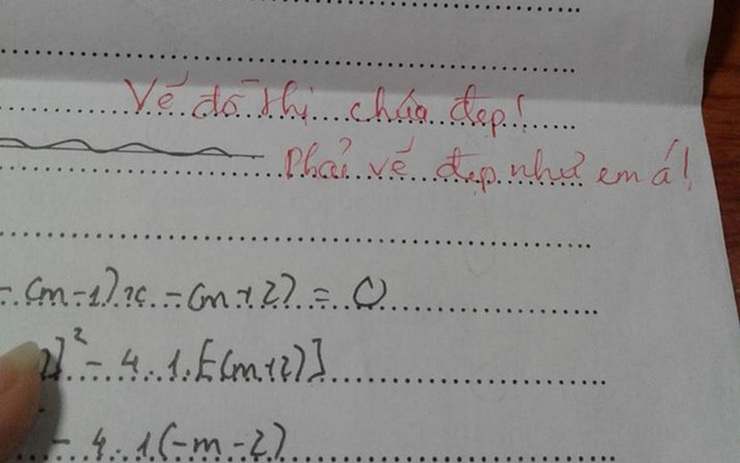 Vẽ đồ thị chưa đẹp!
Phải vẽ đẹp như em á!
- (m-1)x - (m+2) = 0
)]² - 4.1.[-(m+2)]
- 4.1(-m-2)